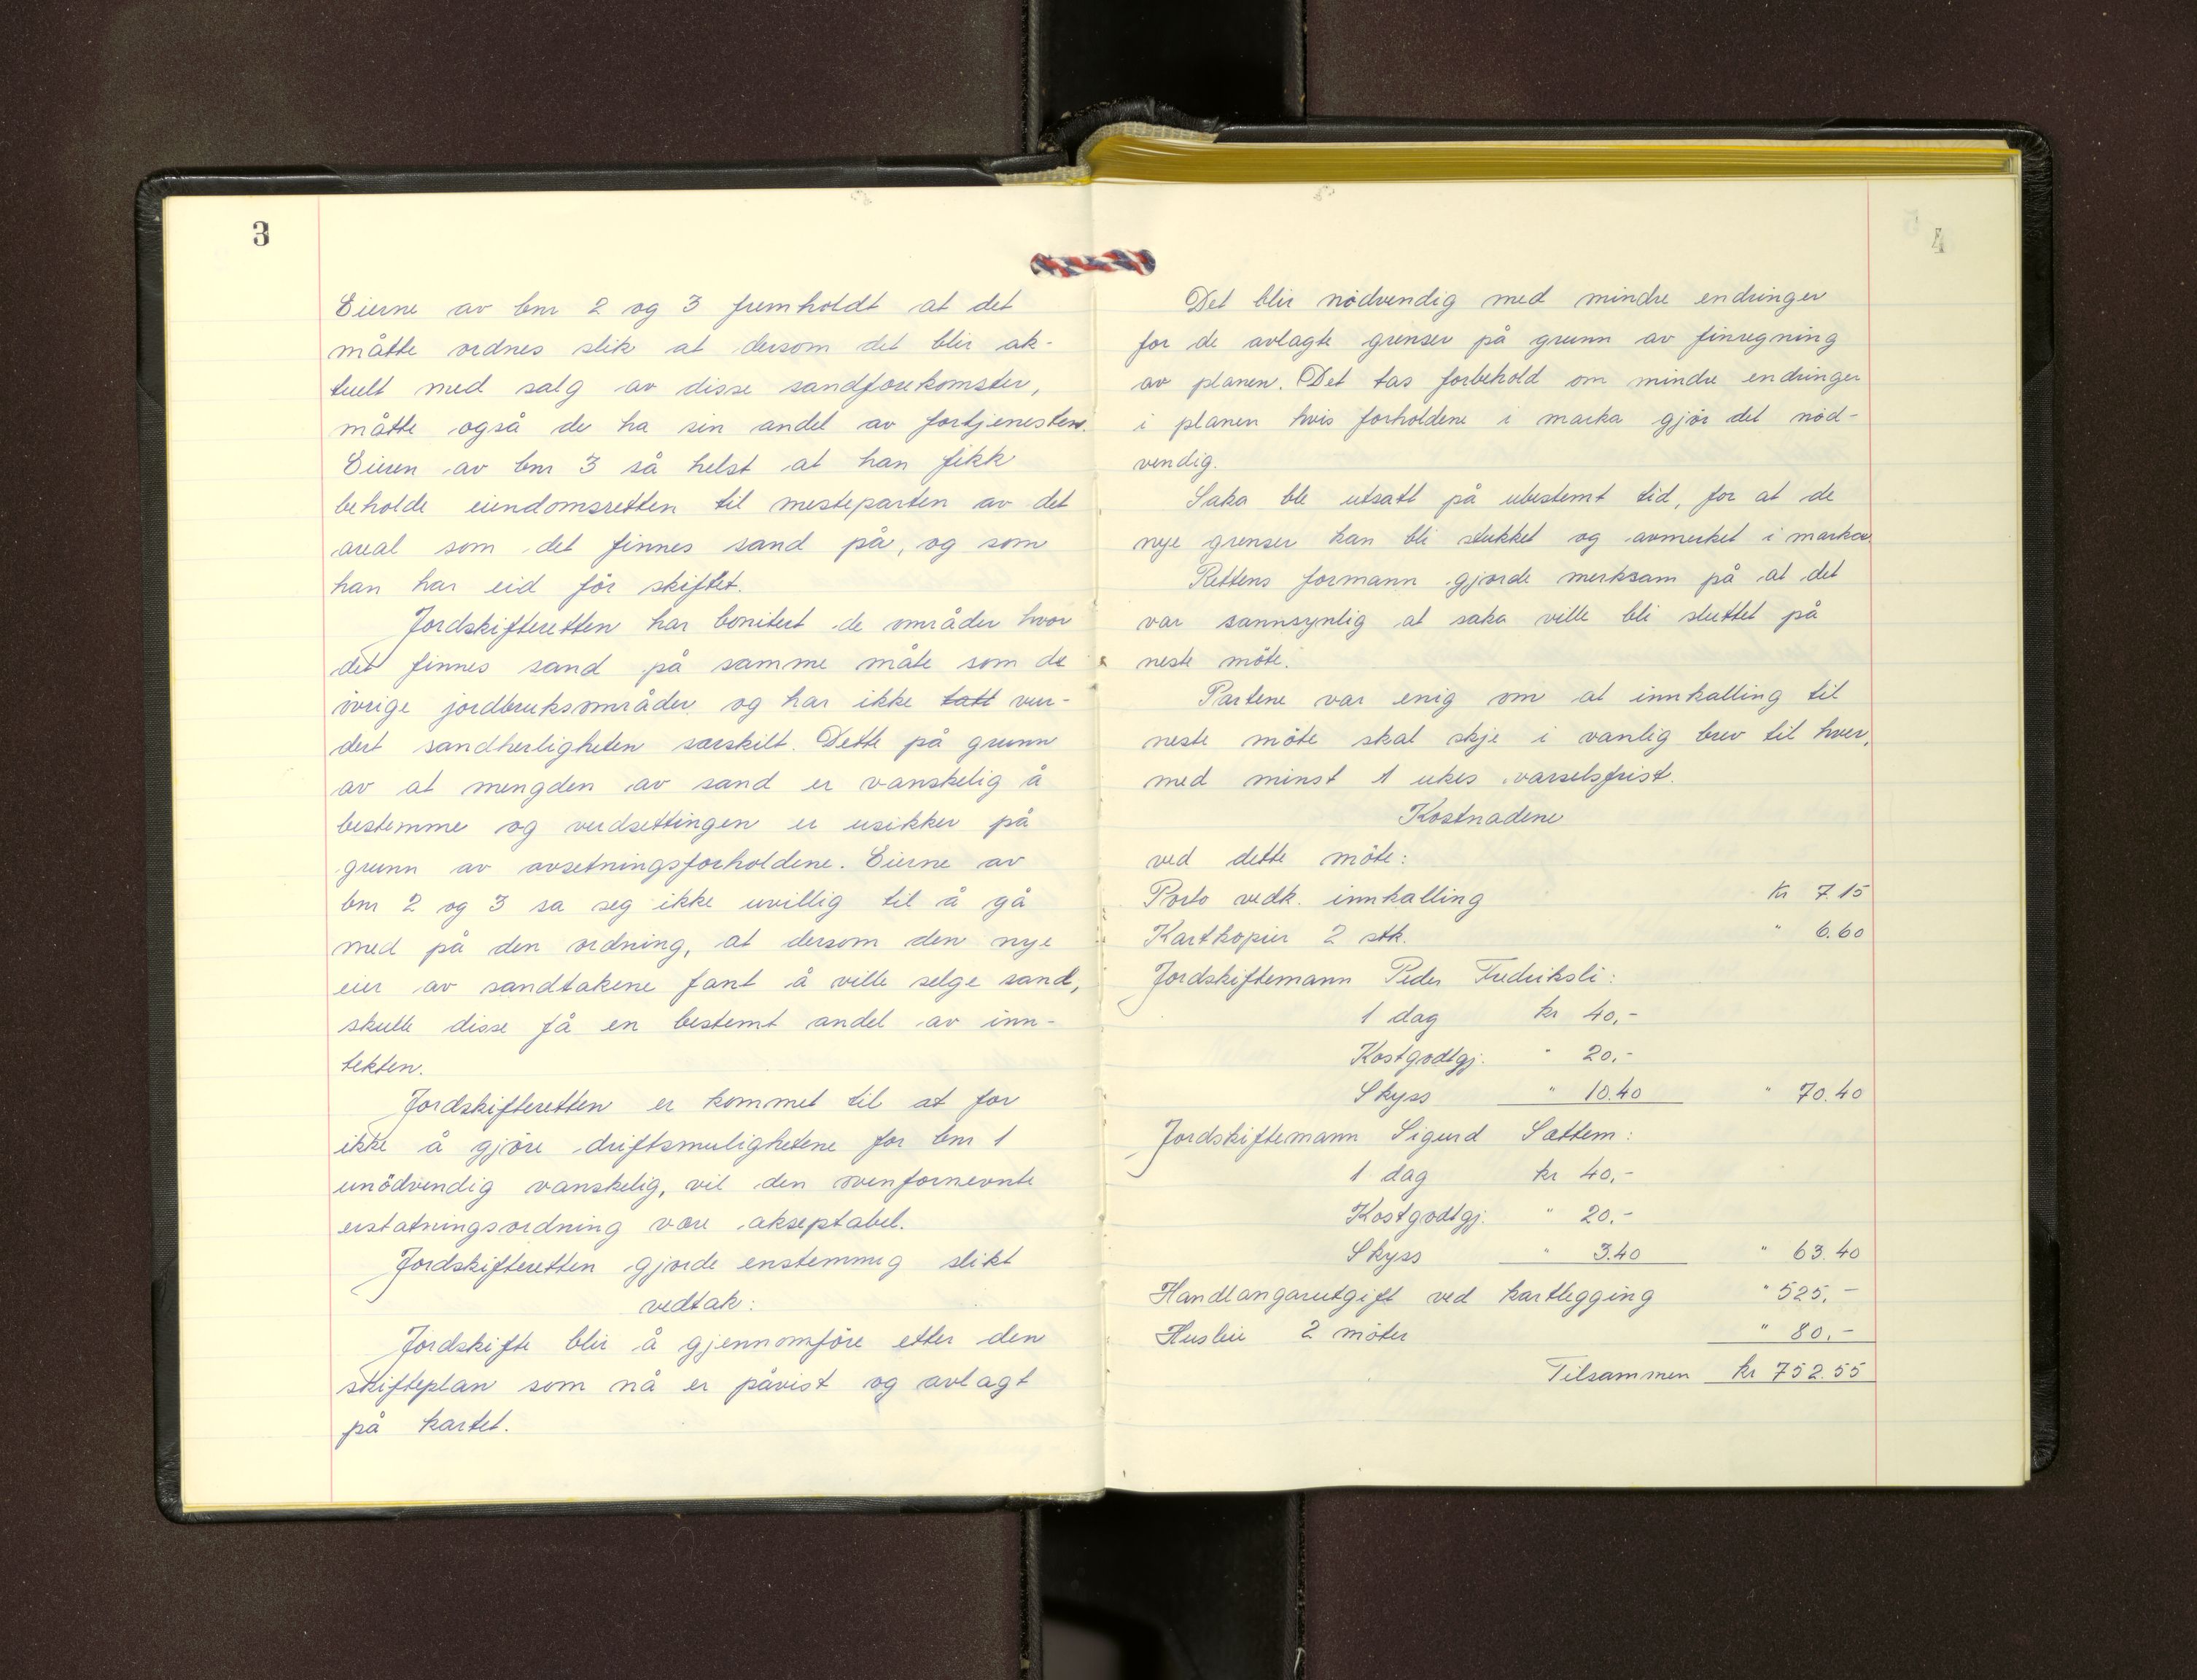 3
Eierne av bnr 2 og 3 fremholdt at det
måtte ordnes slik at dersom det blir ak-
tuelt med salg av disse sandforekomster,
måtte også de ha sin andel av fortjenesten.
Eieren av bnr 3 så helst at han fikk
beholde eiendomsretten til mesteparten av det
areal som det finnes sand på, og som
han har eid för skiftet.
Jordskifteretten har bonitert de områder hvor
det finnes sand på samme måte som de
övrige jordbruksområder og har ikke tatt vur-
dert sandherligheten særskilt. Dette på grunn
av at mengden av sand er vanskelig å
bestemme og verdsettingen er usikker på
grunn av avsetningsforholdene. Eierne av
bnr 2 og 3 sa seg ikke uvillig til å gå
med på den ordning, at dersom den nye
eier av sandtakene fant å ville selge sand,
skulle disse få en bestemt andel av inn-
tekten.
Jordskifteretten er kommet til at for
ikke å gjöre driftsmulighetene for bnr 1
unödvendig vanskelig, vil den ovenfornevnte
erstatningsordning være akseptabel.
Jordskifteretten gjorde enstemmig slikt
vedtak:
Jordskifte blir å gjennomföre etter den
skifteplan som nå er påvist og avlagt
på kartet.
4
Det blir nödvendig med mindre endringer
for de avlagte grenser på grunn av finregning
av planen. Det tas forbehold om mindre endringer
i planen hvis forholdene i marka gjör det nöd-
vendig.
Saka ble utsatt på ubestemt tid, for at de
nye grenser kan bli stukket og avmerket i marka.
Rettens formann gjorde merksam på at det
var sannsynlig at saka ville bli sluttet på
neste möte.
Partene var enig om at innkalling til
neste möte skal skje i vanlig brev til hver,
med minst 1 ukes varselsfrist.
Kostnadene
ved dette möte:
Porto vedk. innkalling kr 7.15
Kartkopier 2 stk. " 6.60
Jordskiftemann Peder Fredriksli:
1 dag kr 40,-
Kostgodtgj. " 20,-
Skyss " 10.40 " 70.40
Jordskiftemann Sigurd Sættem:
1 dag kr 40,-
Kostgodtgj. " 20,-
Skyss " 3.40 " 63.40
Handlangarutgift ved kartlegging " 525,-
Husleie 2 möter " 80,-
Tilsammen kr 752.55